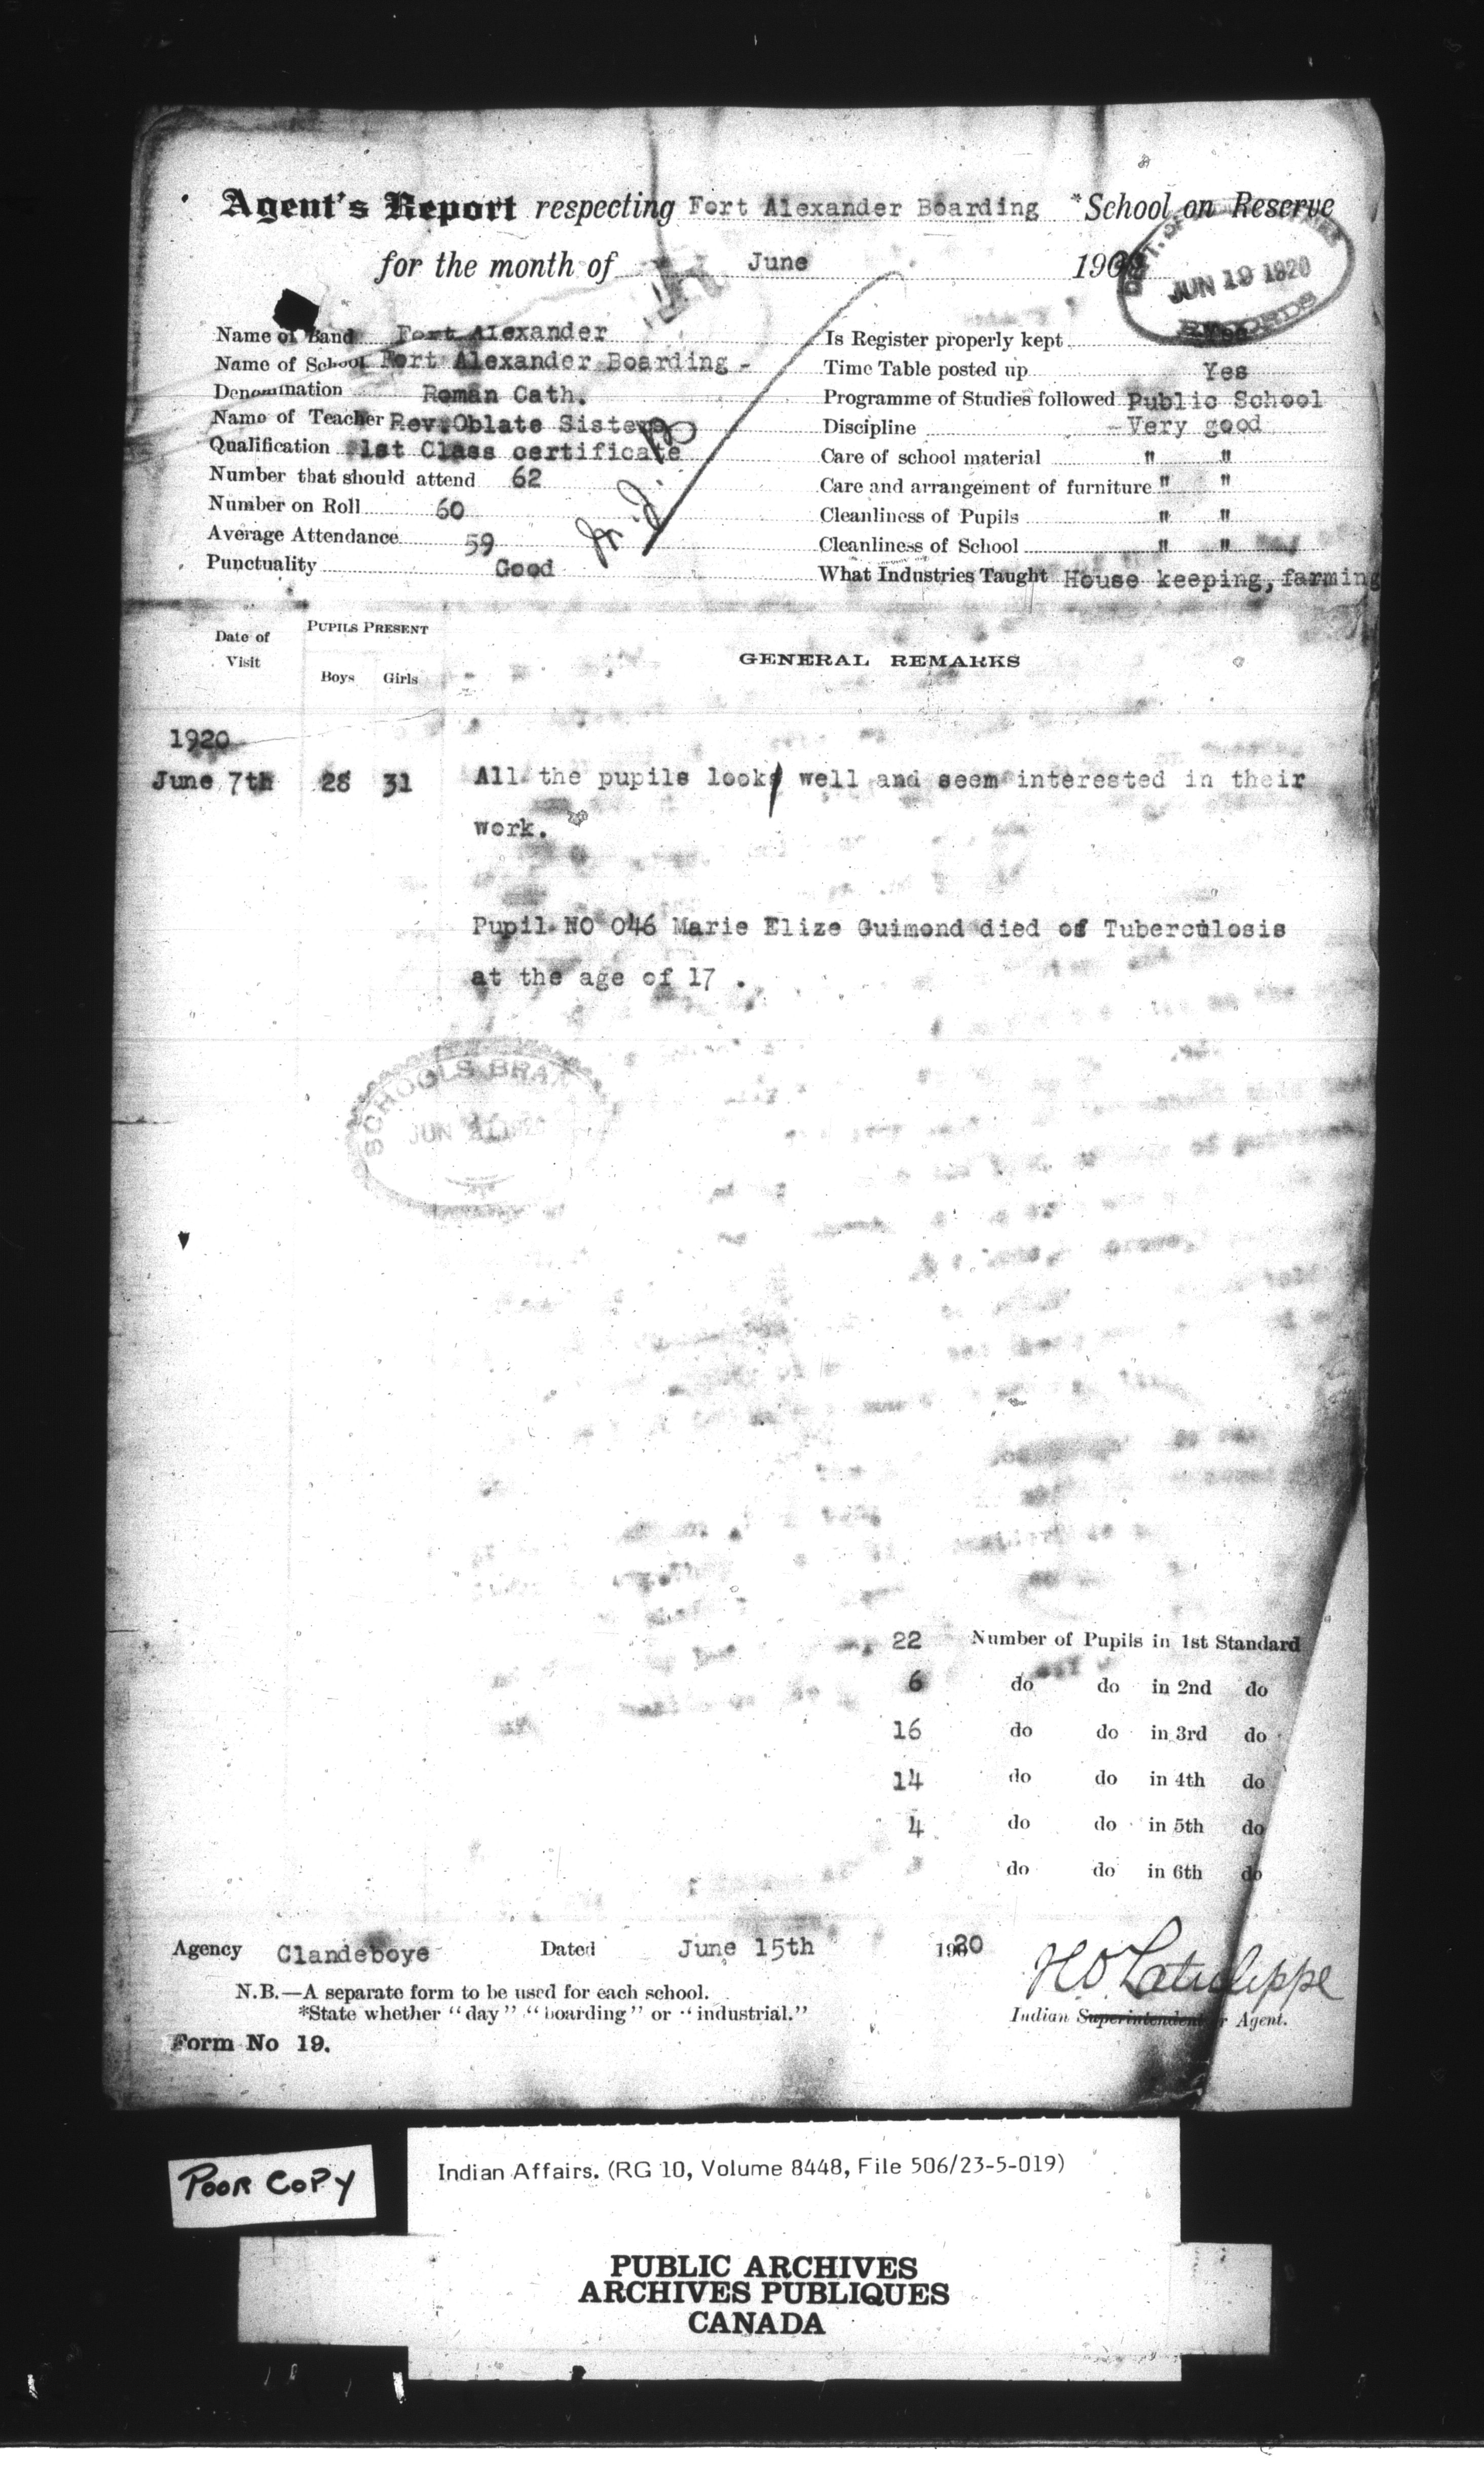 Agent's Report respecting Fort Alexander Boarding *School on Reserve
for the month of June 190
DEPT. OF
JUN 19 1920
RECORDS
Name of Band Fort Alexander
Name of School Fort Alexander Boarding -
Denomination Roman Cath.
Name of Teacher Rev. Oblate Sisters
Qualification 1st Class certificate
Number that should attend 62
Number on Roll 60
Average Attendance 59
Punctuality Good
Is Register properly kept Yes
Time Table posted up Yes
Programme of Studies followed Public School
Discipline Very good
Care of school material " "
Care and arrangement of furniture " "
Cleanliness of Pupils " "
Cleanliness of School " "
What Industries Taught House keeping, farming
Date of Visit
PUPILS PRESENT
Boys Girls
GENERAL REMARKS
1920
June 7th 28 31 All the pupils look well and seem interested in their
work.
Pupil NO 046 Marie Elize Guimond died of Tuberculosis
at the age of 17 .
SCHOOLS BRA
JUN 1920
22 Number of Pupils in 1st Standard
6 do do in 2nd do
16 do do in 3rd do
14 do do in 4th do
4 do do in 5th do
do do in 6th do
Agency Clandeboye Dated June 15th 1920
N.B.—A separate form to be used for each school.
*State whether "day" "boarding" or "industrial."
Indian Superintendent or Agent.
Form No 19.
POOR COPY
Indian Affairs. (RG 10, Volume 8448, File 506/23-5-019)
PUBLIC ARCHIVES
ARCHIVES PUBLIQUES
CANADA